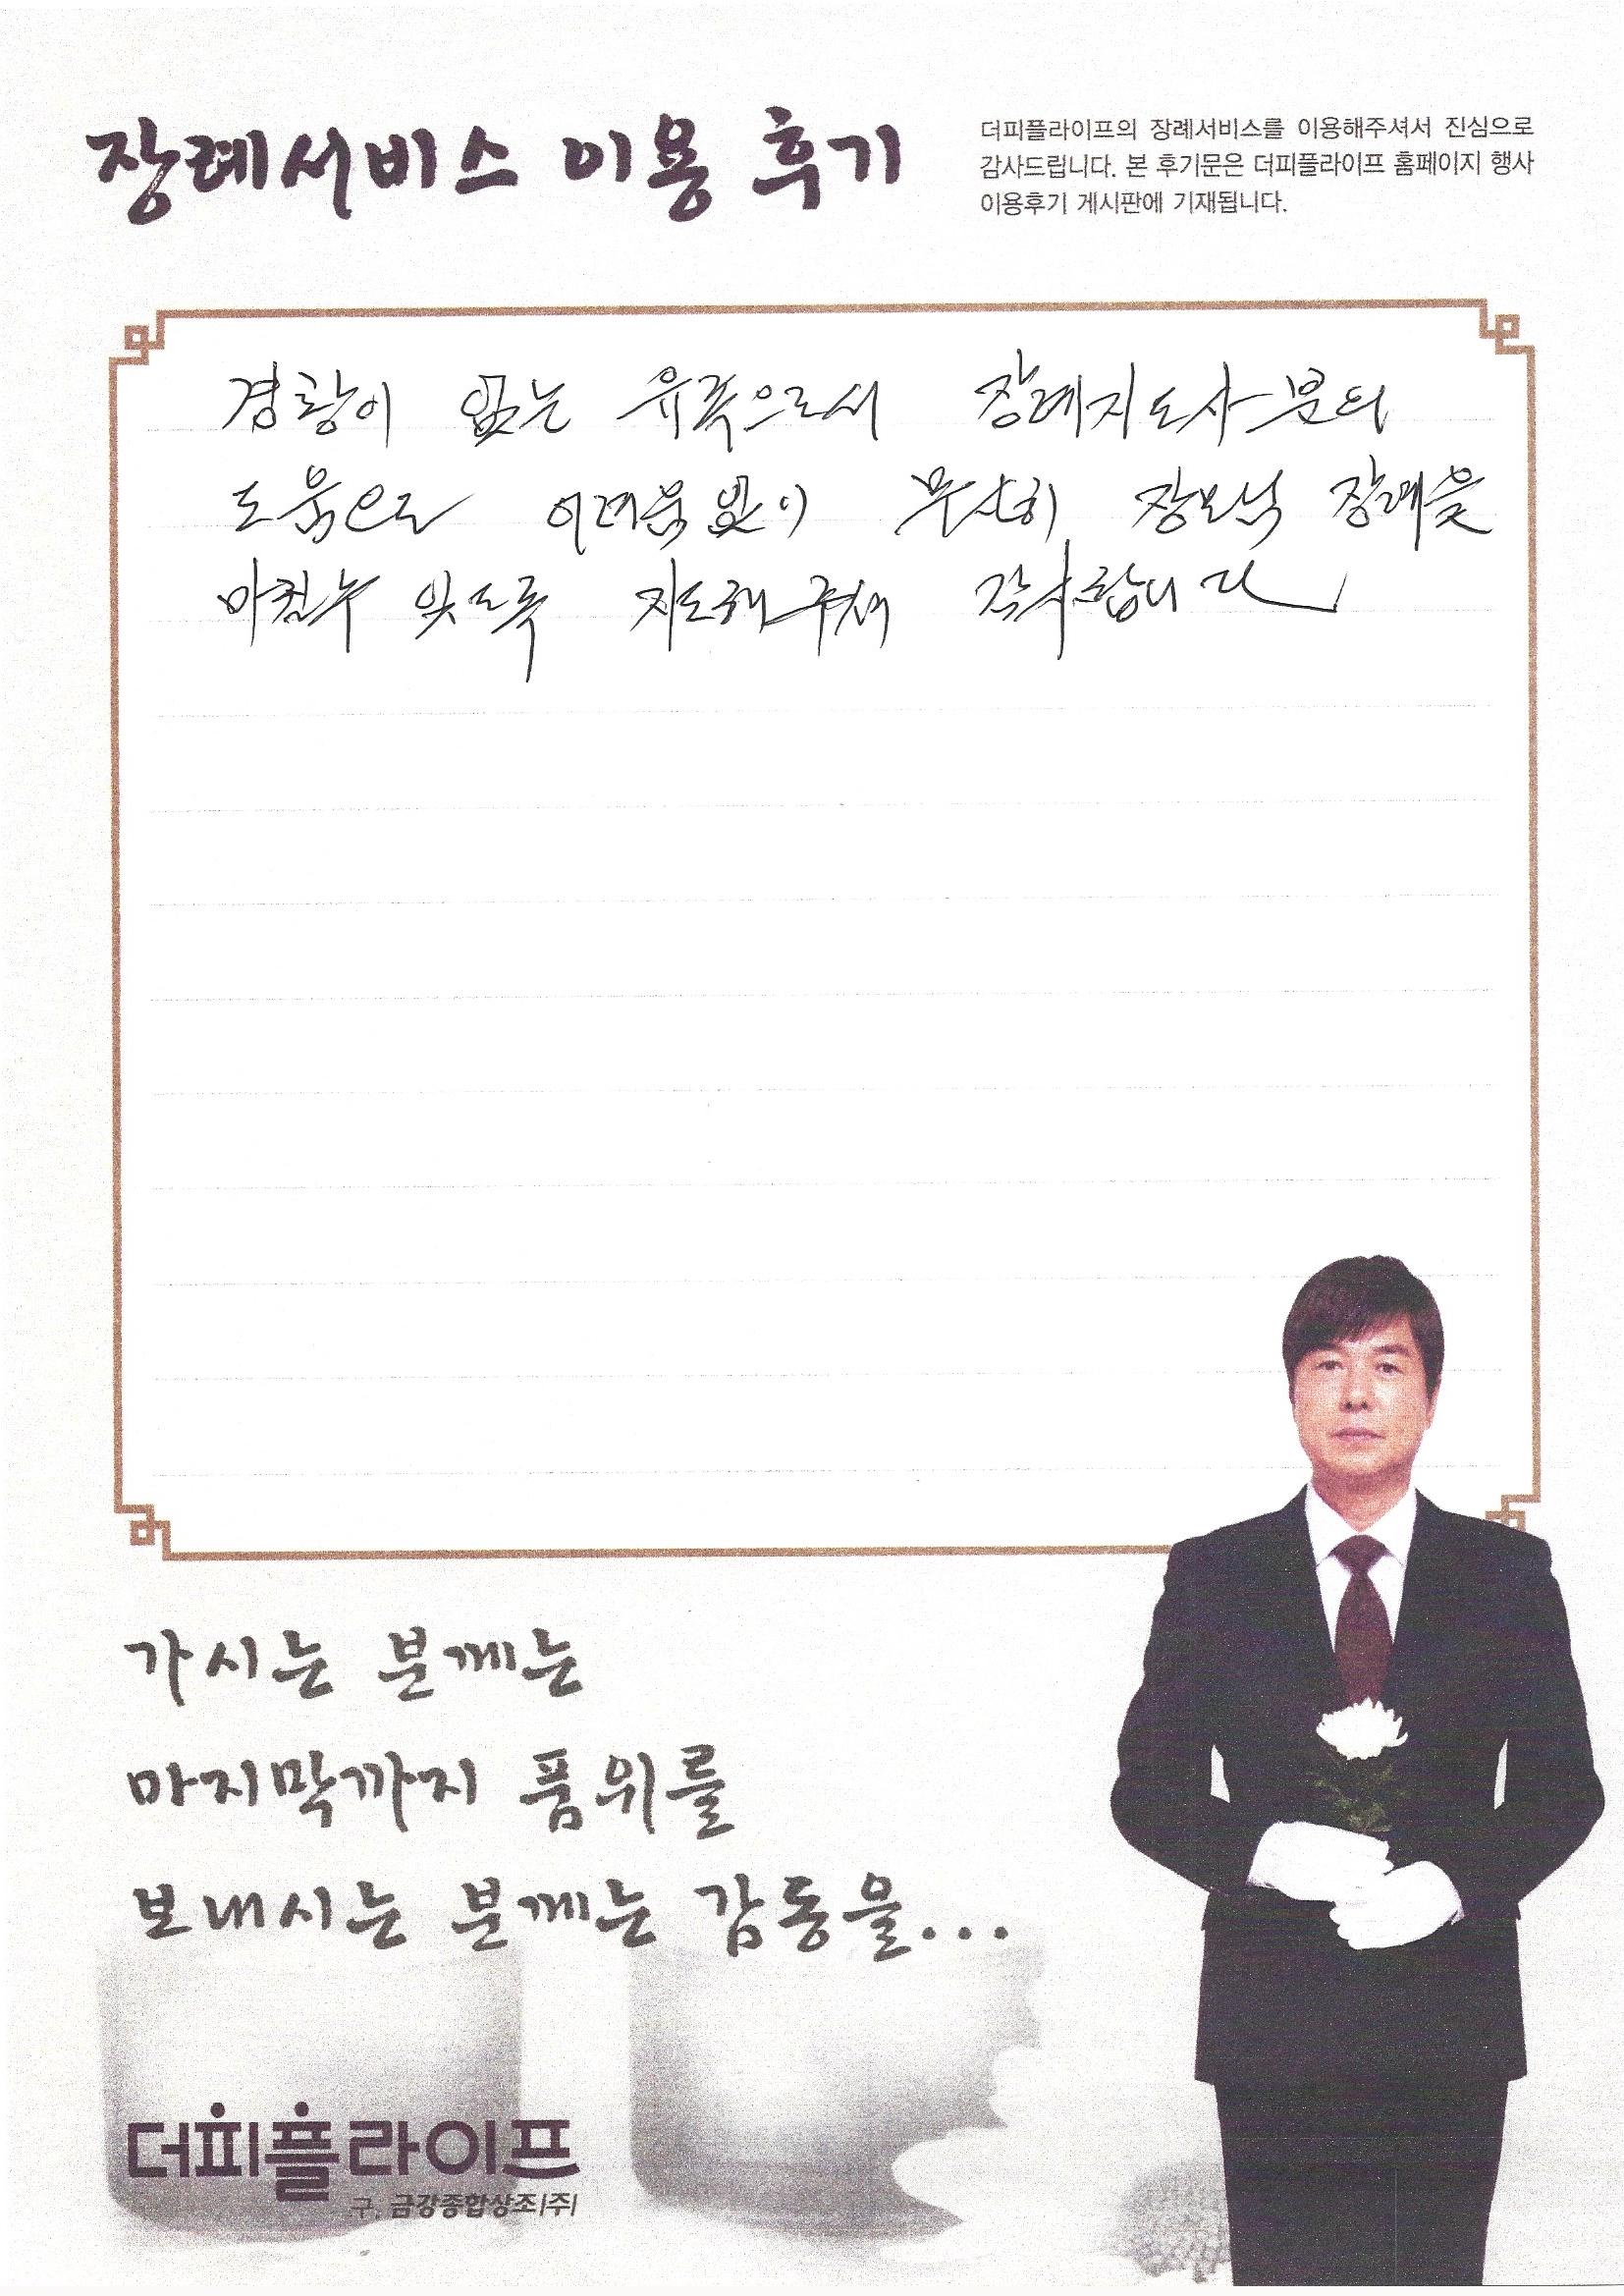 장례서비스 이용 후기
더피플라이프의 장례서비스를 이용해주셔서 진심으로
감사드립니다. 본 후기문은 더피플라이프 홈페이지 행사
이용후기 게시판에 기재됩니다.
경황이 없는 유족으로서 장례지도사분의
도움으로 어려움없이 무사히 장모님 장례를
마칠수 있도록 지도해주셔 감사합니다
가시는 분께는
마지막까지 품위를
보내시는 분께는 감동을...
더피플라이프
구. 금강종합상조(주)